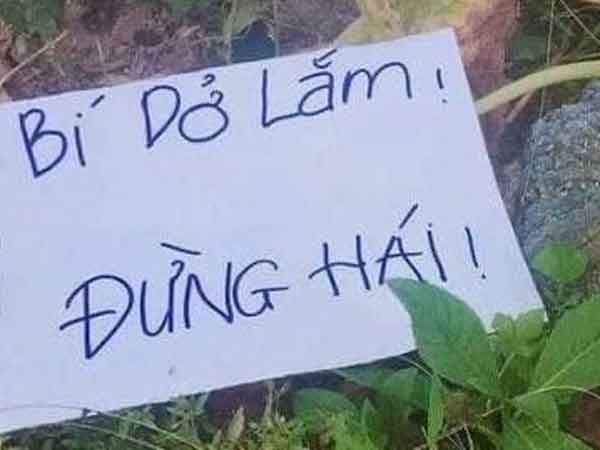 Bí Dở Lắm!
ĐỪNG HÁI!